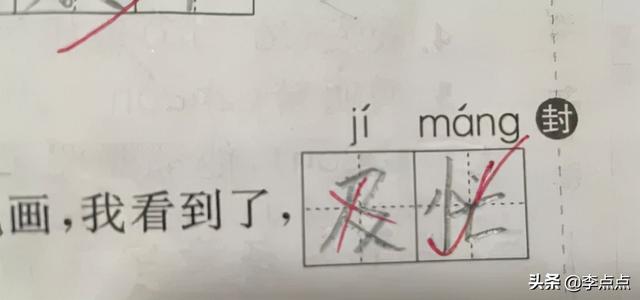 jí máng
封
画,我看到了,及忙
头条 @李点点